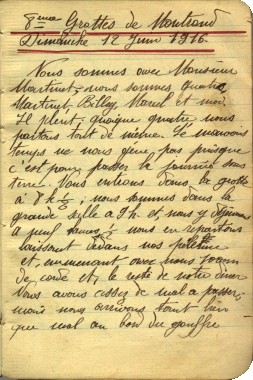 8ème Grottes de Montrond
Dimanche 12 Juin 1916.
Nous sommes avec Monsieur
Martinet, nous sommes quatre
Martinet, Billey, Marcel et moi
Il pleut, quoique quatre nous
partons tout de même. Le mauvais
temps ne nous gêne, pas puisque
c'est pour passer la journée sous
terre. Nous entrons dans la grotte
à 8h½, nous sommes dans la
grande salle à 9h et nous y déjeunons
à peu nous en repartons
laissant dedans nos
et, emmenant avec nous
de corde et, le reste de notre diner
Nous avons assez de mal a passer,
mais nous arrivons tant bien
que mal au bord du gouffre